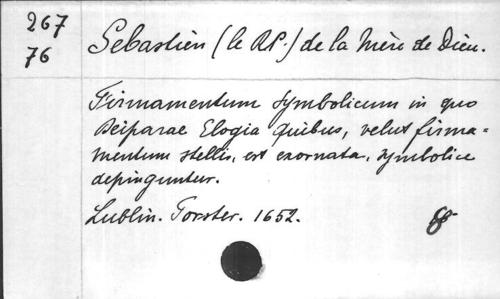 267
76
Sebastien (le RP.) de la Mère de Dieu.
Firmamentum symbolicum in quo
Deiparae Elogia quibus, velut firma=
mentum stellis, est exornata, symbolice
depinguntur.
Lublin. Forster. 1652.